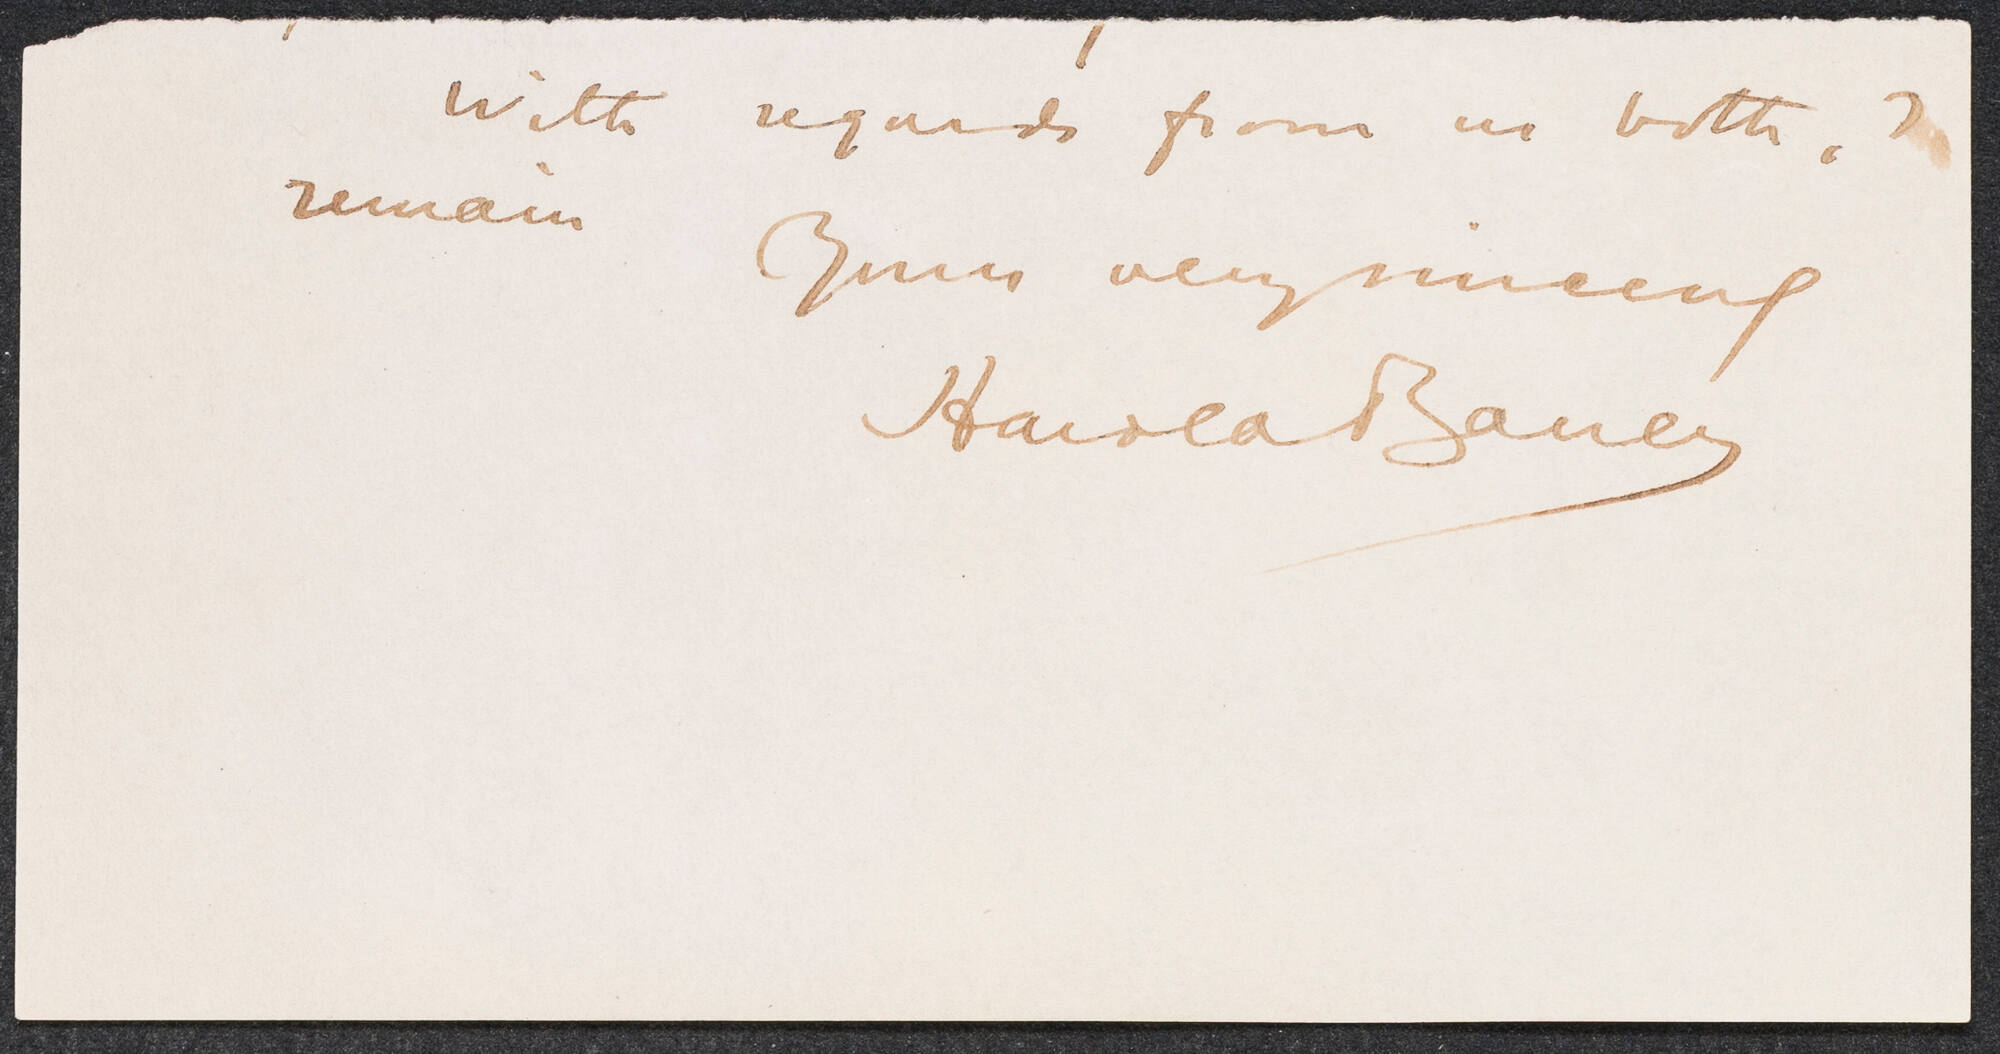 With regards from us both, I
remain
Yours very sincerely
Harold Bauer